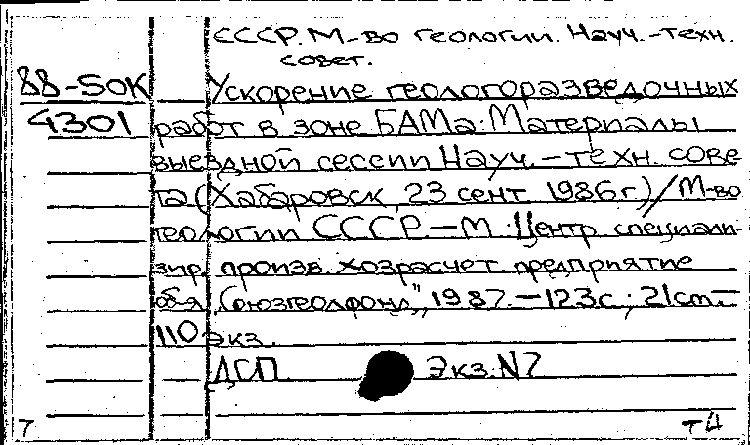 СССР. М-во геологии. Науч.-техн.
совет.
88-50К Ускорение геологоразведочных
4301 работ в зоне БАМа: Материалы
выездной сессии Науч.-техн. сове
та (Хабаровск, 23 сент 1986г.)/М-во
геологии СССР.-М.:Центр. специали-
зир. произв. хозрасчет. предприятие
об-я „Союзгеолфонд", 1987.-123с.; 21см.-
110 экз.
ДСП Экз. N7
7 т Д